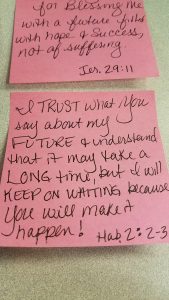 for Blessing me
with a future filled
with hope & Success,
not of suffering.
Jer. 29:11
I TRUST what You
say about my
FUTURE & understand
that it may take a
LONG time, but I will
KEEP ON WAITING because
You will make it
happen!
Hab. 2:2-3